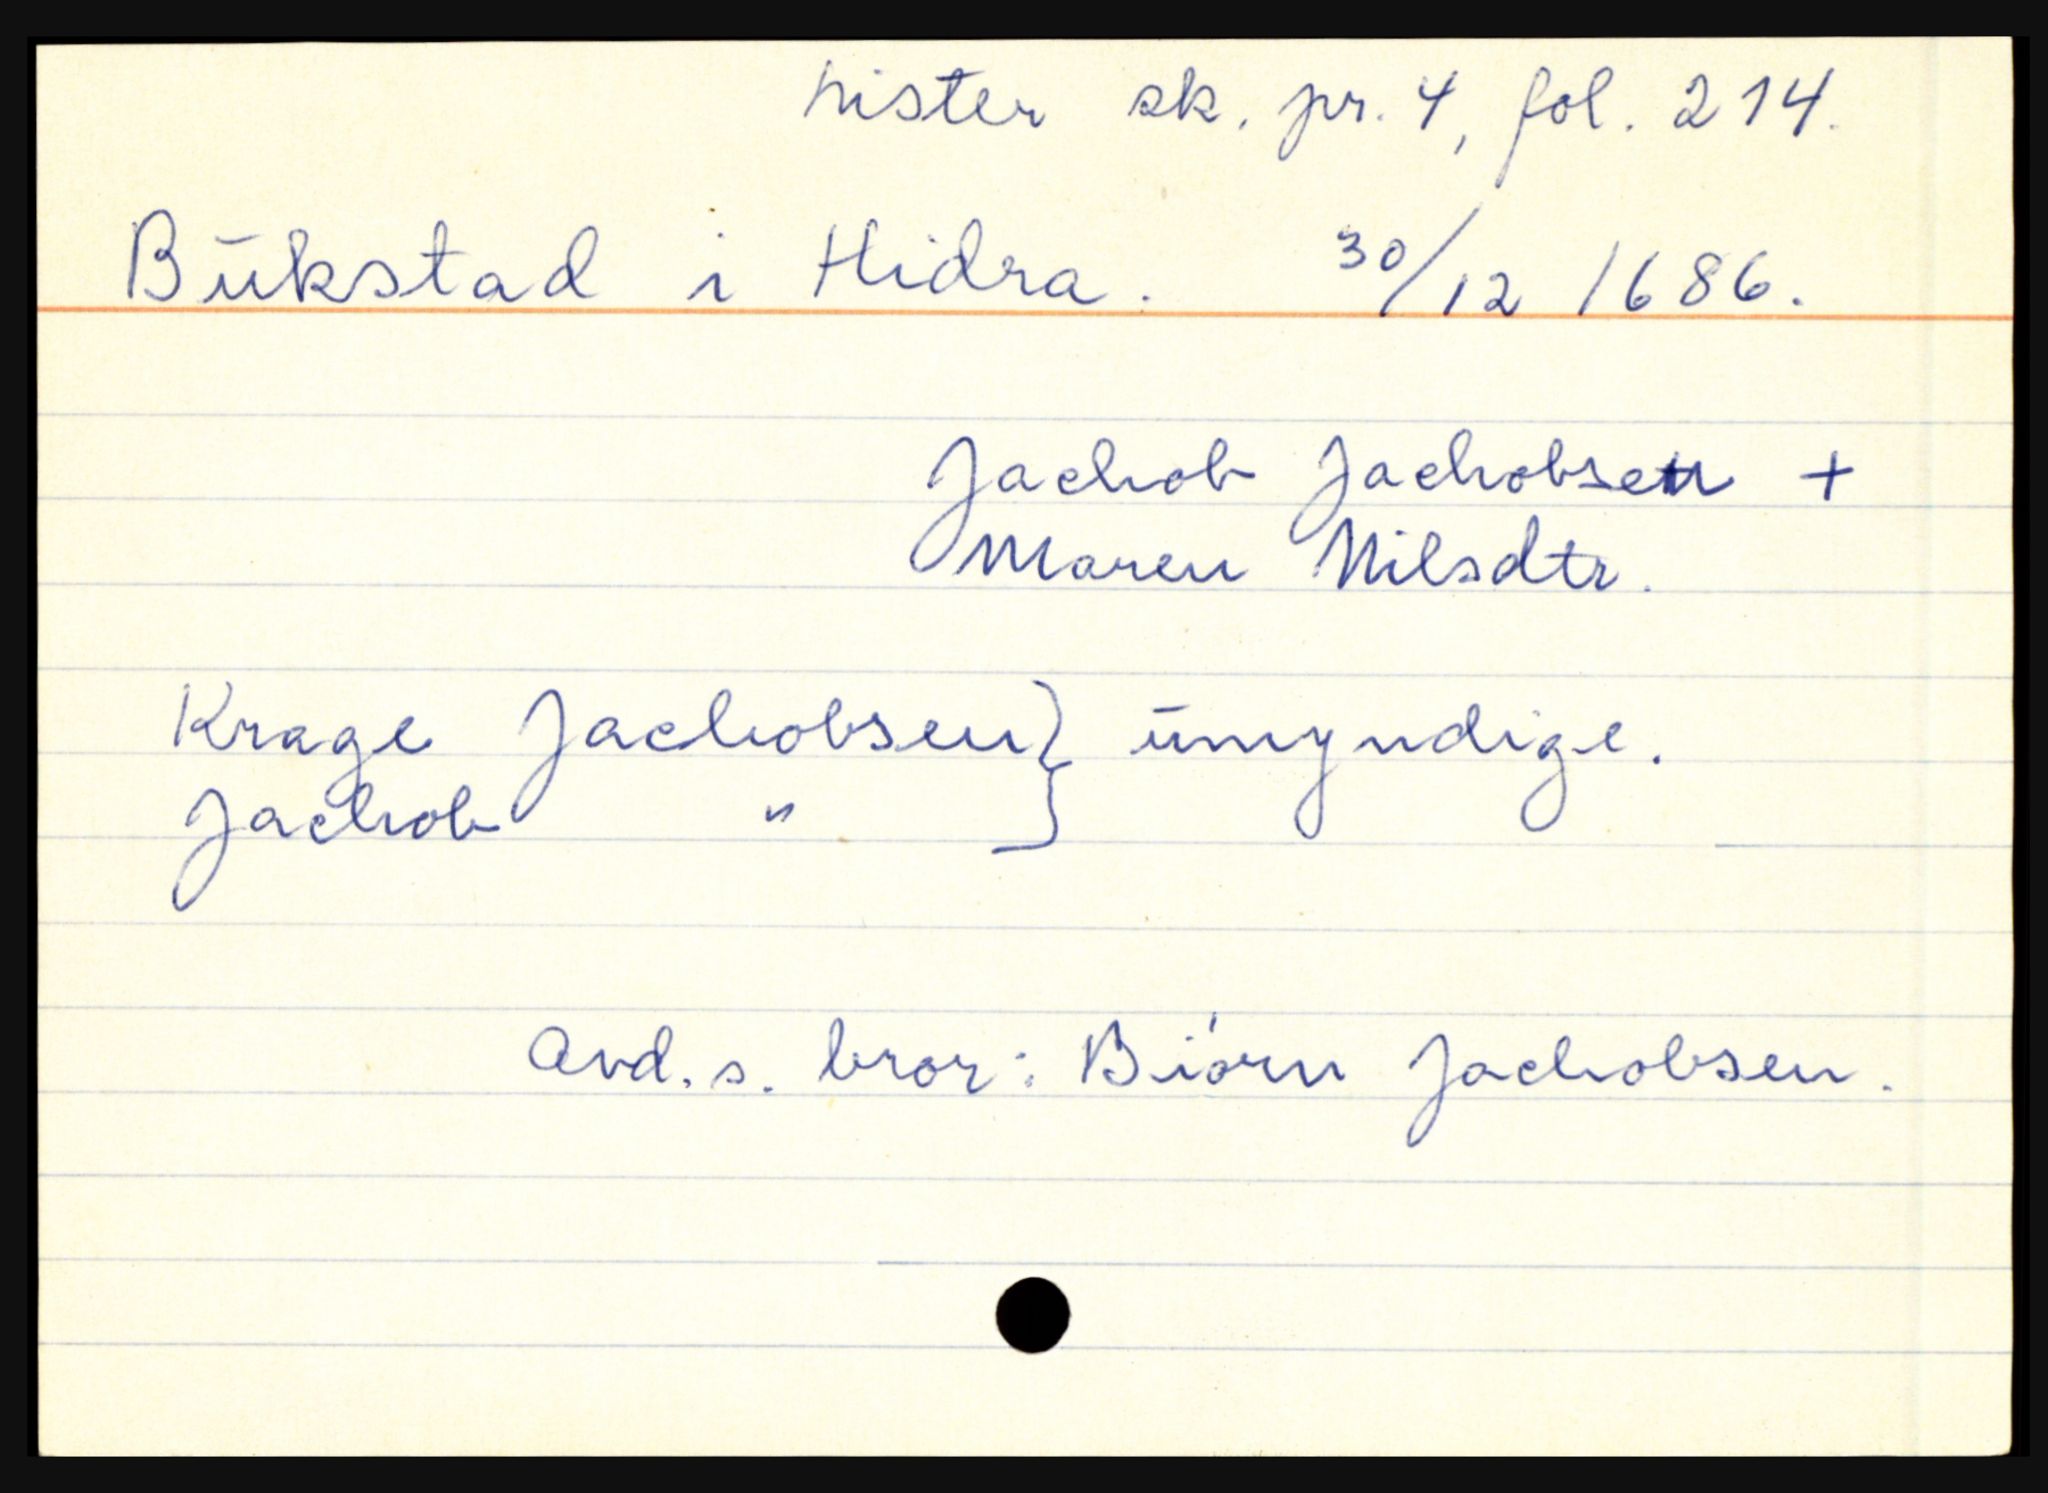 Lister sk. pr. 4, fol. 214.
Būkstad i Hidra. 30/12 1686.
Jachob Jachobsen +
Maren Nilsdtr.
Krage Jachobsen } ūmyndige.
Jachob " }
Avd. s. bror: Biórn Jachobsen.